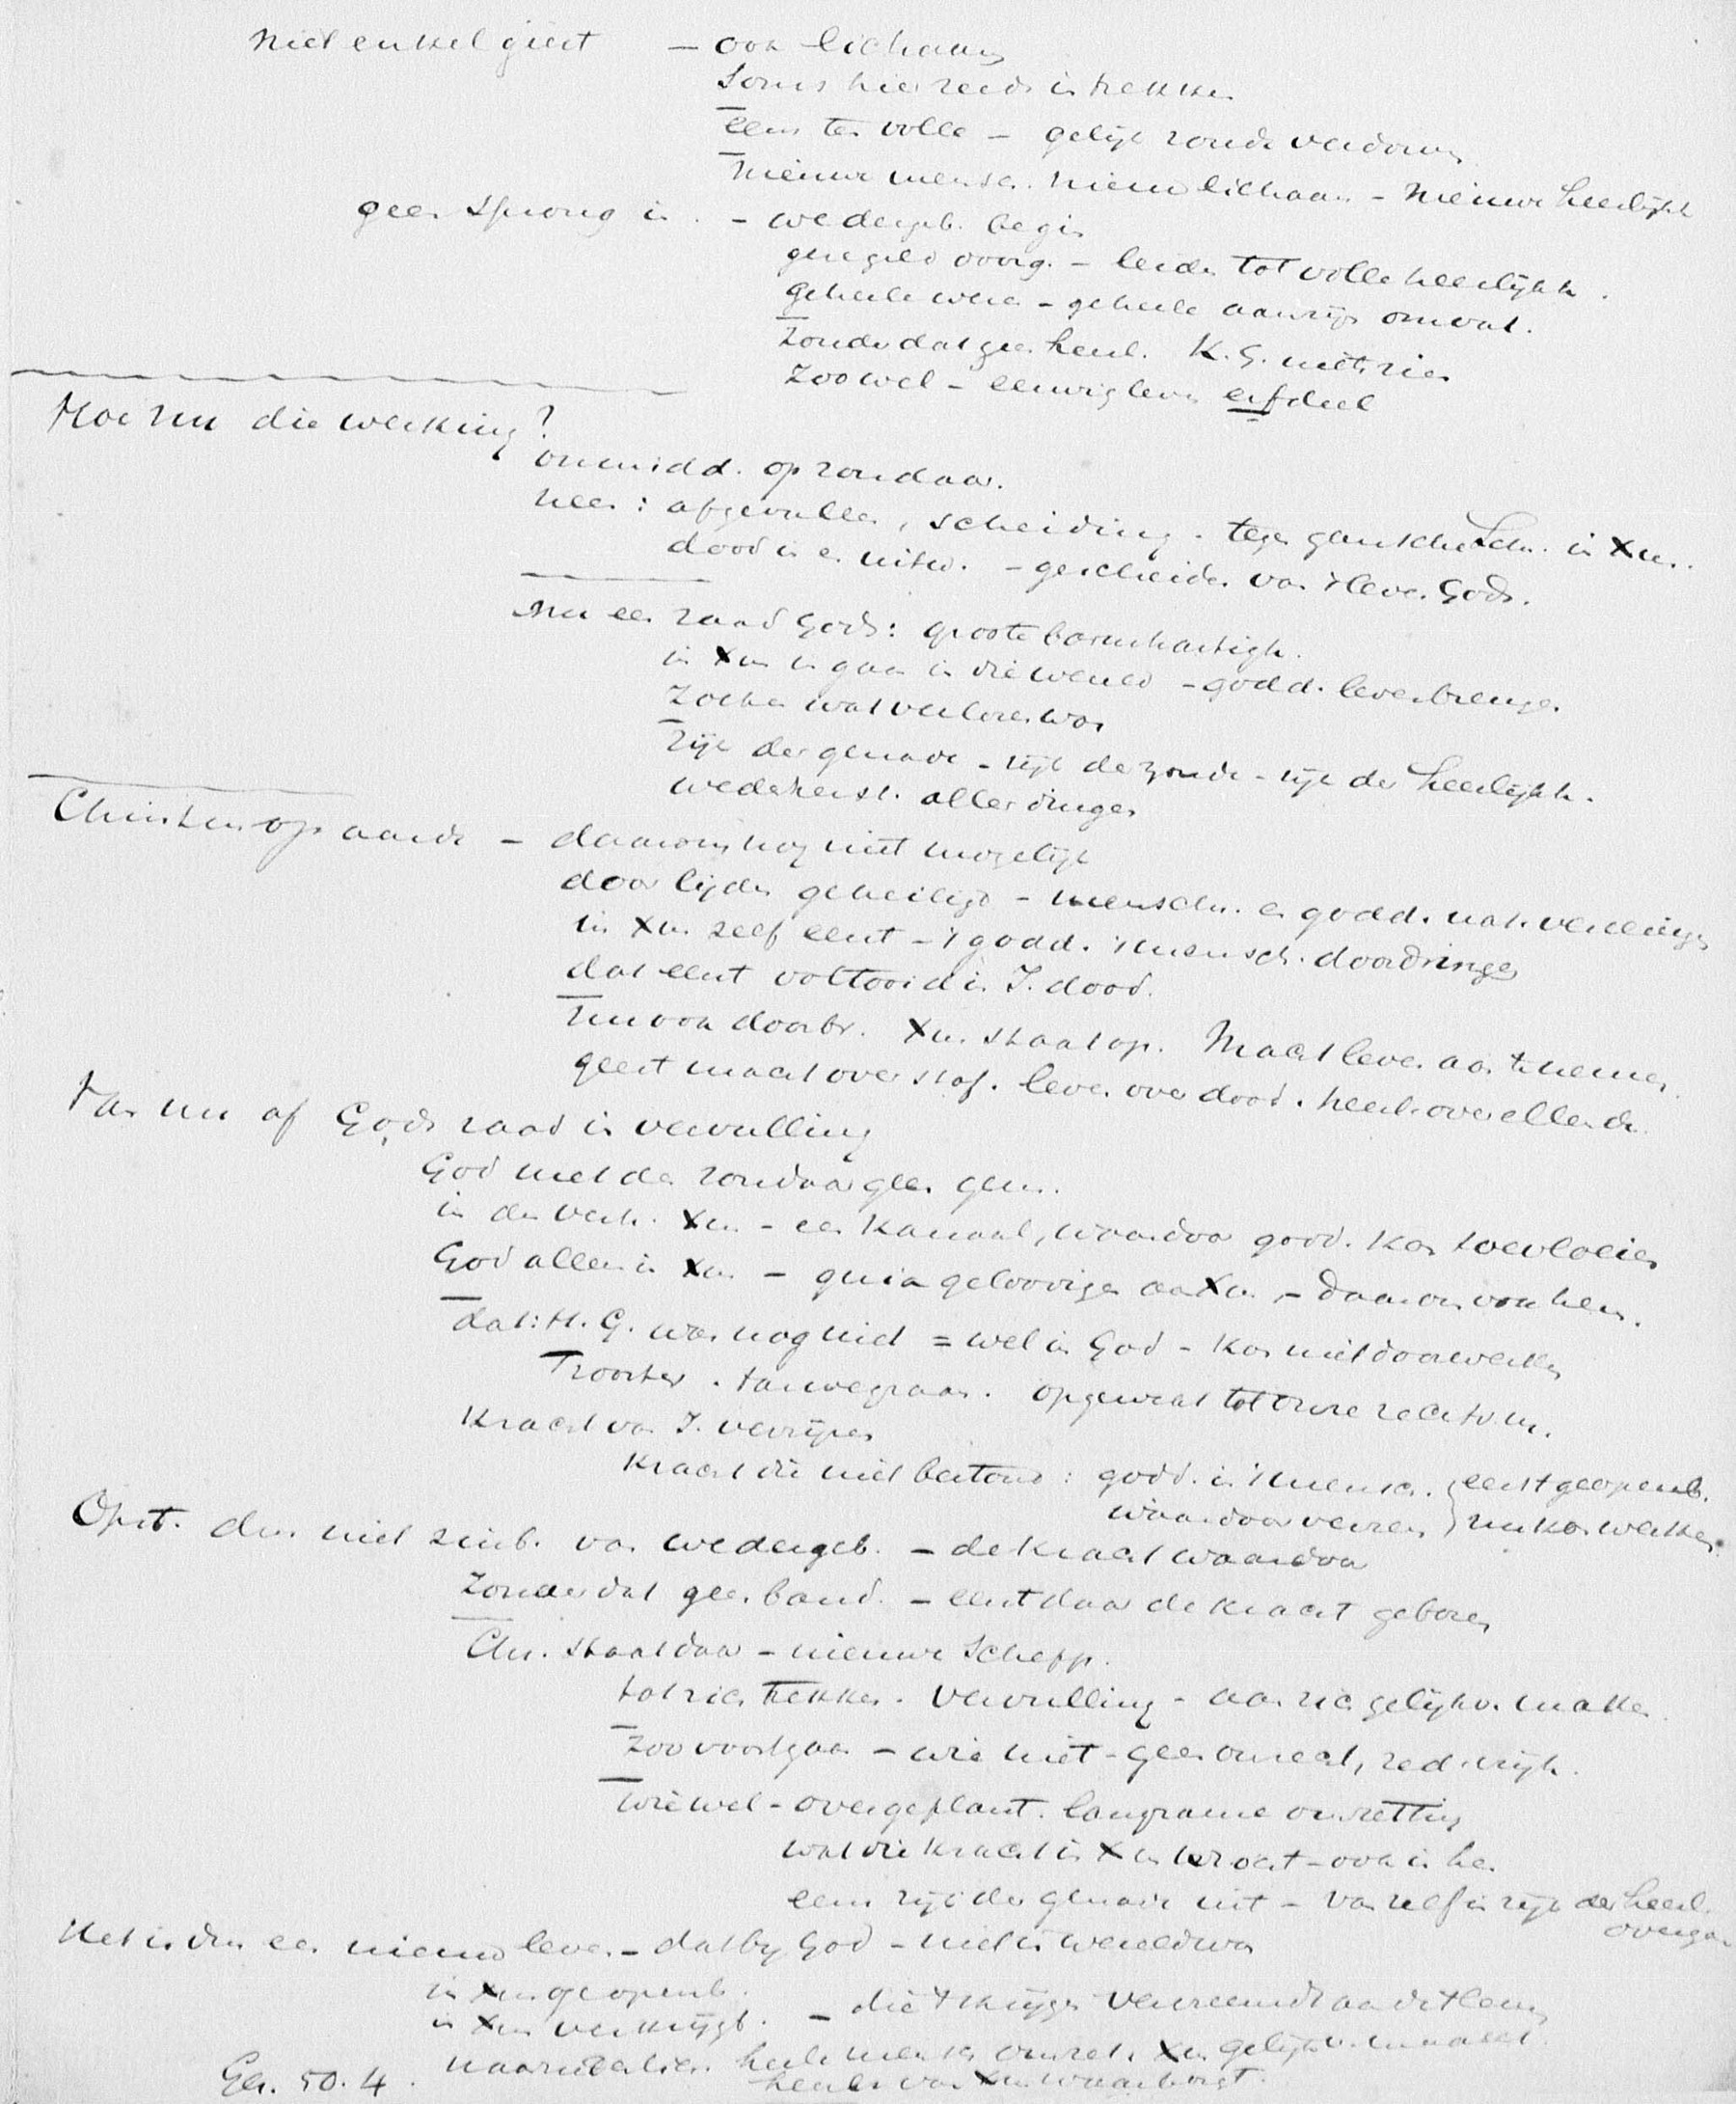 Niet enkel geest — ook lichaam
Soms hier reeds in trekken
Eens ten volle — gelijk zonde verdorven
Nieuwe mensch. Nieuw lichaam — Nieuwe heerlijkh
geen sprong in. — wedergeb. begin
geregeld voorg. — leiden tot volle heerlijkh.
geheele wereld — geheele aanzijn omvat.
Zonder dat geen heerl. K. G. niet zien
Zoo wel — eeuwig leven erfdeel
Hoe nu die werking?
onmidd. op zondaar.
neen: afgevallen, scheiding. tegen gansche Schr. in Xus.
dood in en uitw. — gescheiden van 't leven Gods.
Nu een raad Gods: groote barmhartigh.
in Xus in gaan in die wereld — godd. leven brengen
Zoeken wat verloren was
Rijk der genade — rijk der zonde — rijk der heerlijkh.
wederherst. aller dingen
Christus op aarde — daarom nog niet mogelijk
door lijden geheiligd — menschel. en godd. nat. vereenigen
in Xus zelf eerst — 't godd. 't mensch. doordringen
dat eerst voltooid in J. dood.
Nu ook doorbr. Xus staat op. Macht leven aan te nemen
geest macht over stof. leven over dood. heerl. over ellende
Van nu af Gods raad in vervulling
God met den zondaar geen gem.
in den verh. Xus — een kanaal, waardoor godd. kan toevloeien
God alleen in Xus — quia geloovigen aan Xus — daarom ook hen.
dat: H. G. was nog niet = wel in God — kon niet doorwerken
Trooster. tarwegraan. opgewekt tot onze rechtv.
Kracht van J. verrijzen
Kracht die niet bestond: godd. in 't mensch. } eerst geopenb.
waardoor verrezen } nu kan werken
Opst. dus niet zinb. van wedergeb. — de kracht waardoor
Zonder dat geen band. — eerst daar de kracht geboren
Chr. staat daar — nieuwe Schepp.
tot zich trekken. Vervulling — aan zich gelijkv. maken
Zoo voortgaan — wie niet — geen onrecht, red. vrijh.
Wie wel — overgeplant. langzame omzetting
wat die kracht in Xus wrocht — ook in hen
eens rijk der genade uit — van zelf in rijk der heerl.
overgaan
Het is dus een nieuw leven — dat by God — niet in wereld was
in Xus geopenb.
in Xus verkrijgb. — die 't krijgen vervreemd aan dit leven
naar realia. heele mensch omzet. Xus gelijkv. maakt.
heerlijkh van Xus waarborgt.
Gez. 50.4.